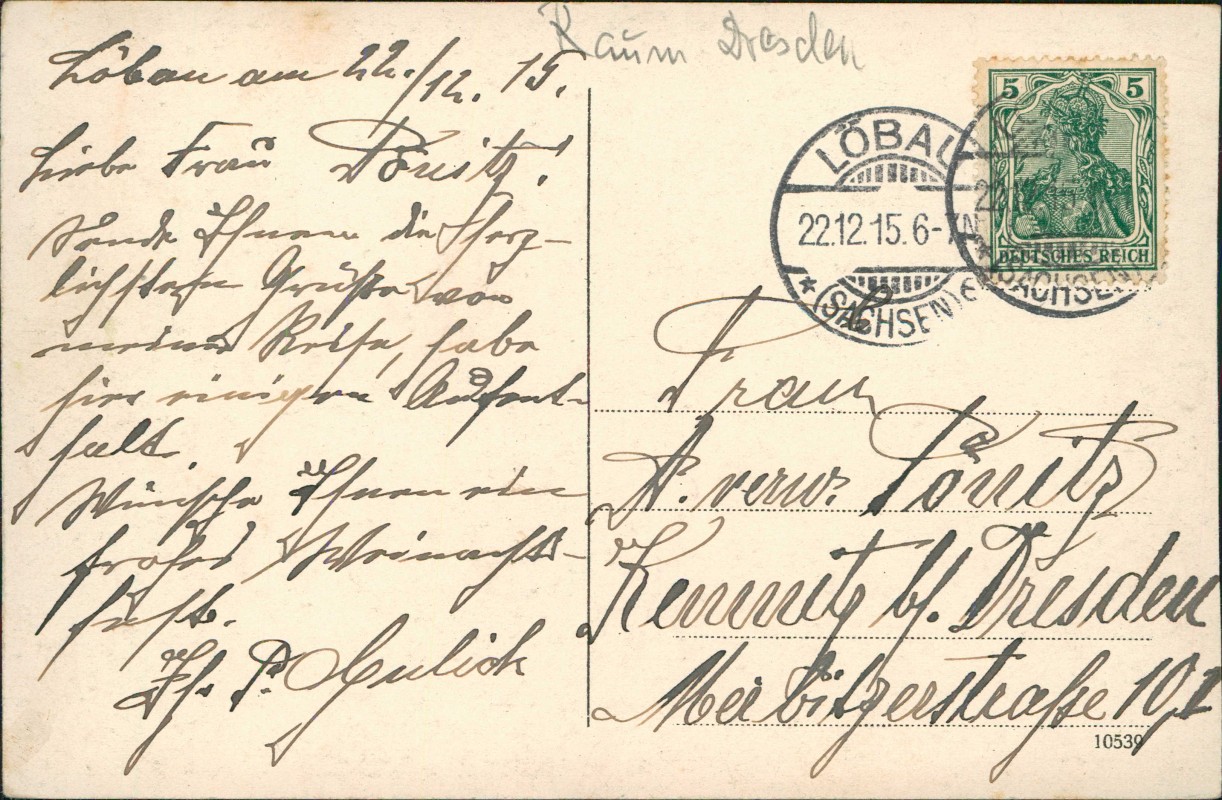 Raum Dresden
Löbau am 22./12. 15.
Liebe Frau Pönitz!
Sende Ihnen die herz-
lichsten Grüße von
meiner Reise, habe
hier einigen Aufent-
halt.
Wünsche Ihnen ein
frohes Weinachts-
fest.
Ihr P.
5 5
DEUTSCHES REICH
LÖBAU
22.12.15.6-7N
* (SACHSEN)
Frau
A. verw. Pönitz
Kemnitz b/. Dresden
Merbitzerstraße 10, I
10539